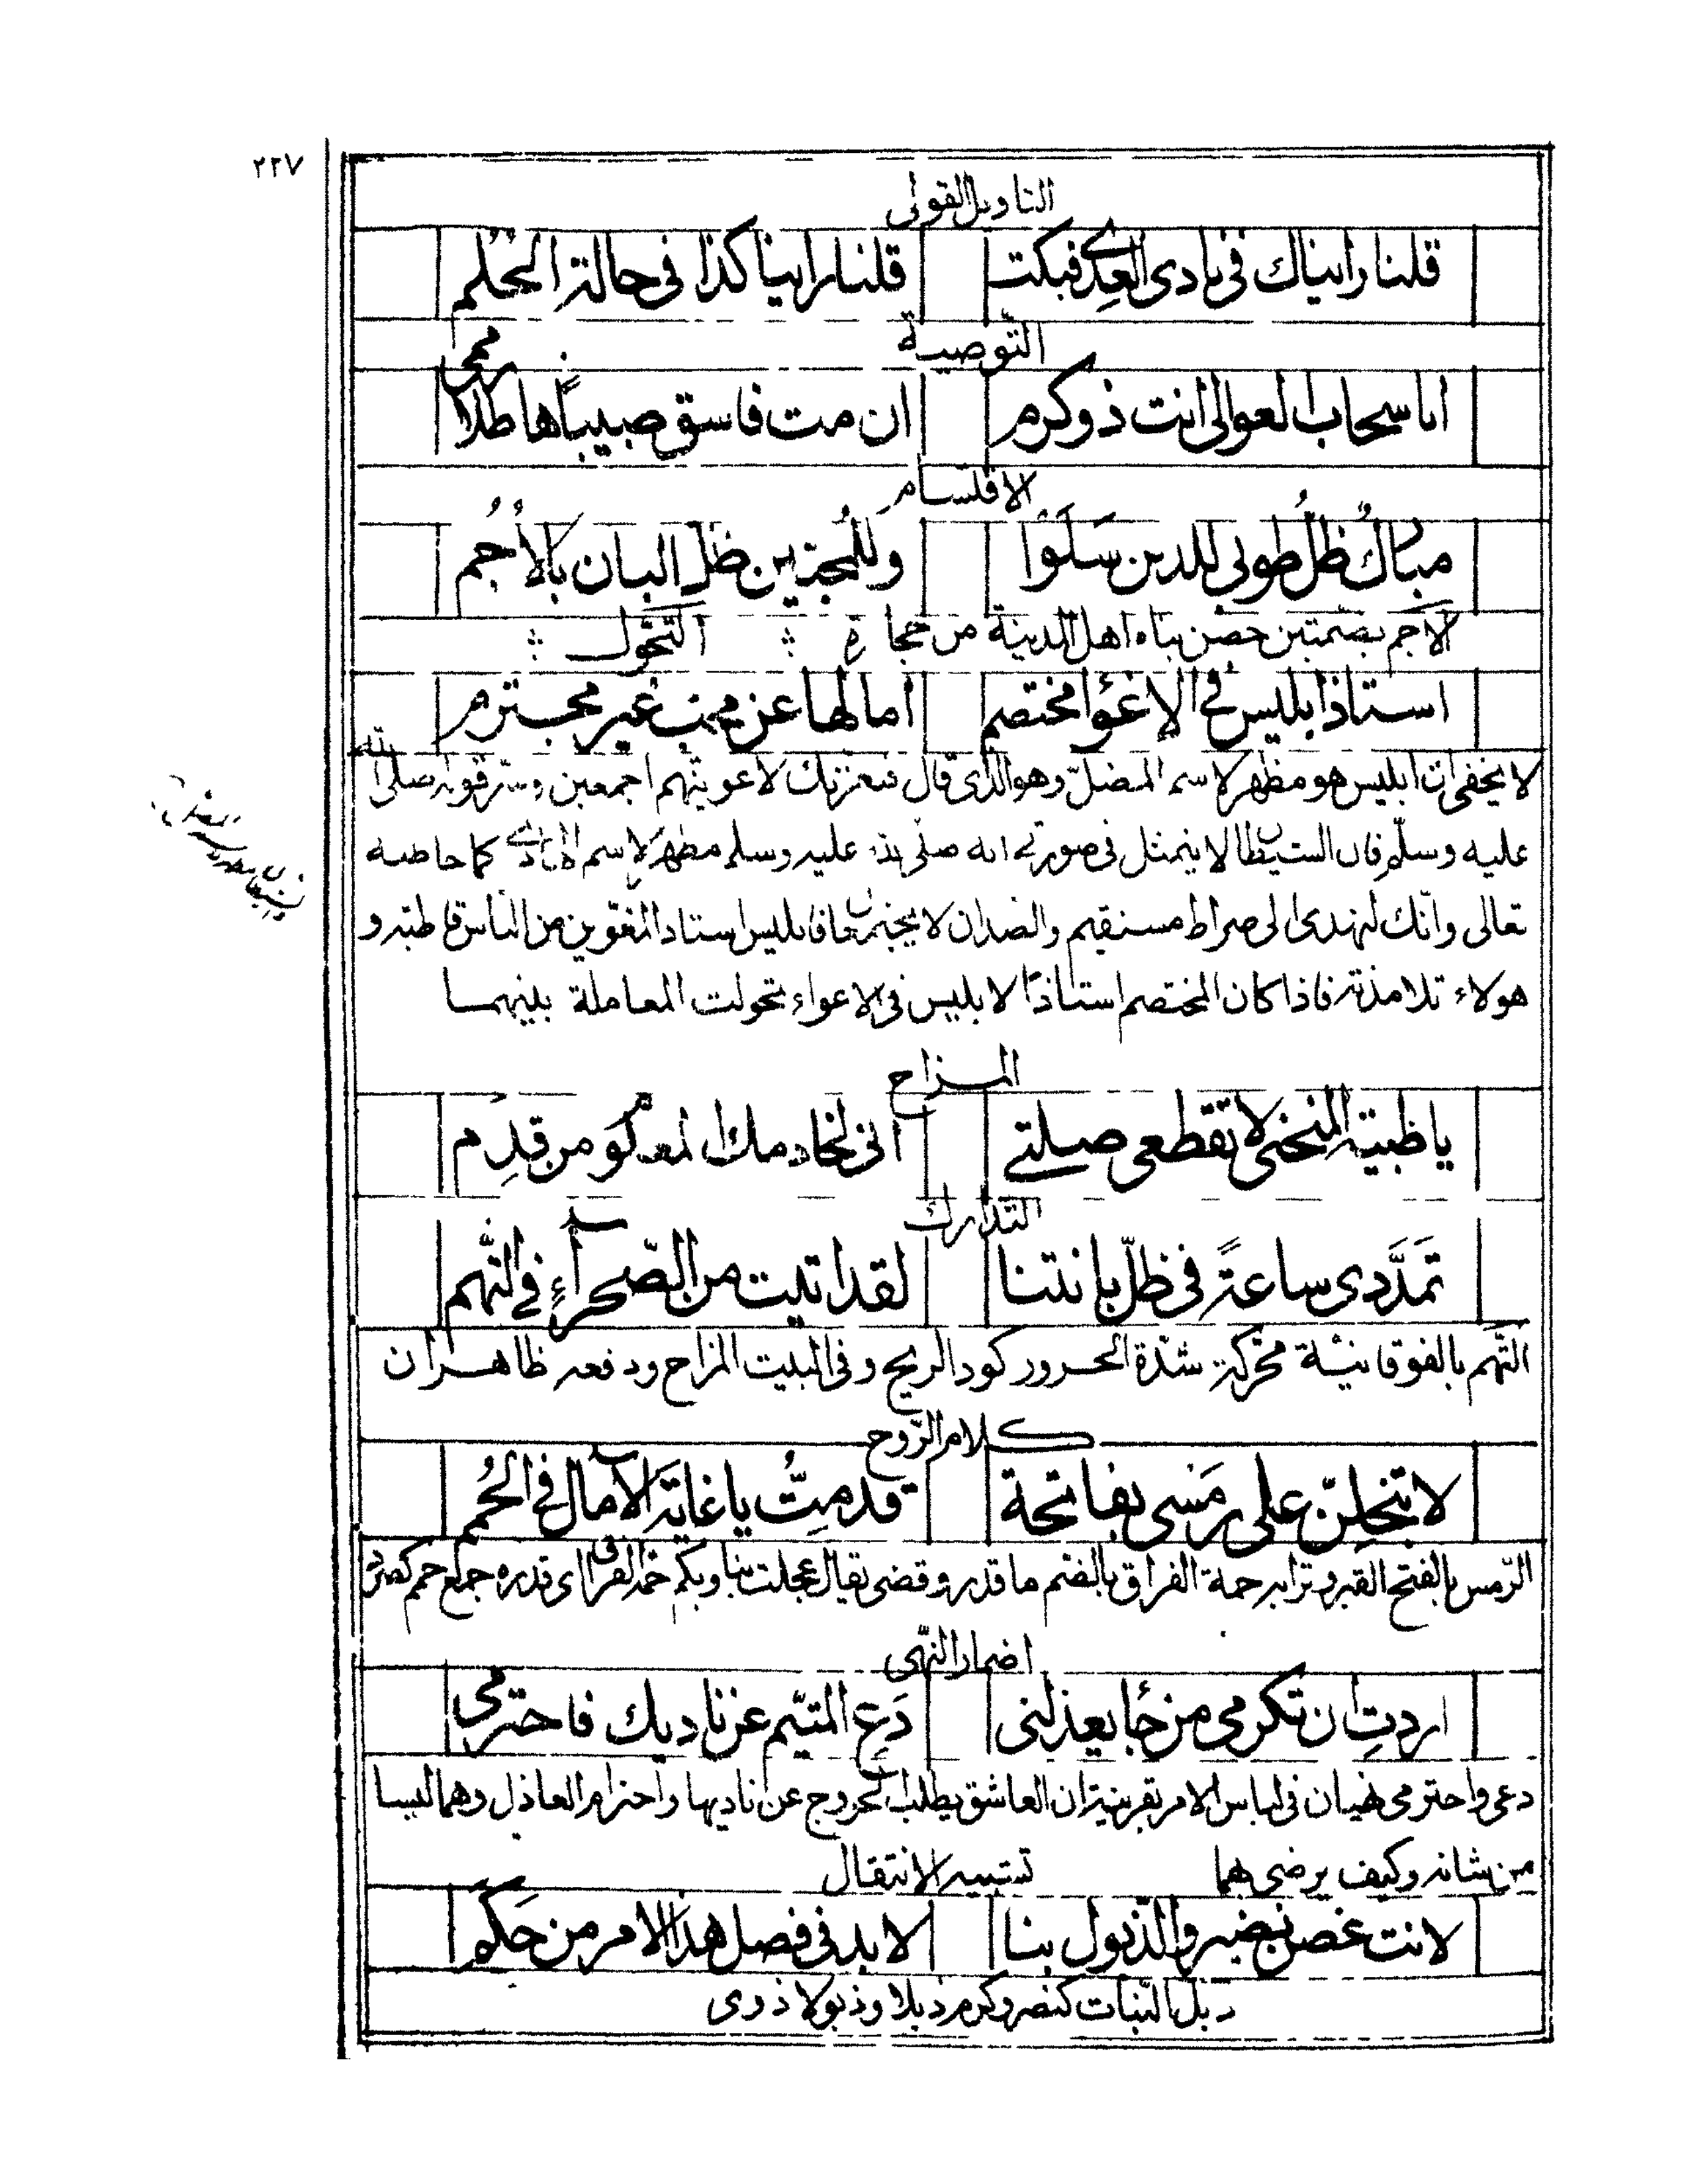 ٢٢٧
التاويل القولى
قلنا رايناك فى نادى العدى فبكت قلنا راينا كذا فى حالة الحلم
التّوصية
اما سحاب العوالى انت ذو كرم ان مت فاسق صبيباً هاطلا رممى
الاقتسام
مبارك ظلّ طوبى للذين سَلَوْا وللمحبّين ظل البان بالأُجُم
الاجم بضمتين حصن بناه اهل المدينة من حجارة التحوّل
استاذ ابليس فى الإغوا مختصم امالها عن محب غير مجترم
لا يخفى ان ابليس هو مظهر لاسم المضلّ وهو الذى قال فبعزتك لاغوينهم اجمعين وسرّ قوله صلى الله
عليه وسلّم فان الشيطان لا يتمثل فى صورتى انه صلى الله عليه وسلم مظهر لاسم الهادى كما خاطبه
تعالى وانّك لتهدى الى صراط مستقيم والضدان لا يجتمعان فابليس استاد المغوين من الناس قاطبة و
هولاء تلامذته فاذا كان المختصم استاذًا لابليس فى الاغواء تحولت المعاملة بينهما
المزاح
يا ظبية المنحنى لا تقطعى صلتى انى لخادمك المعكو من قدم
التدارك
تمَدَّدى ساعةً فى ظلّ بانتنا لقد اتيت من الصّحراءِ فى التَّهم
التَّهم بالفوقانية محرّكة شدّة الحر وركود الريح وفى البيت المزاح ودفعه ظاهران
كلام الرّوح
لا تبخلِنّ على رمَسى بفاتحة قد مِتُّ يا غايَة الآمال فى الحُمَم
الرّمس بالفتح القبر وترابه حمة الفراق بالضم ما قدر وقضى يقال عجلت بنا وبكم حمة الفراق اى قدره جمع حمم كصرد
اضمار النّهى
اردتِ ان تكرمى من جأ يعذلنى دَعِ المتيّم عن ناديك فاحترمى
دعى واحترمى نهيان فى لباس الامر بقرينة ان العاشق يطلب الخروج عن ناديها واحترام العاذل وهما ليسا
من شانه وكيف يرضى بهما تشبيه الانتقال
لانت غصن نضير والذّبول بنا لا بد فى فصل هذا الامر من حَكَم
ذبل النّبات كنصر وكرم ذبلا وذبولا ذوى